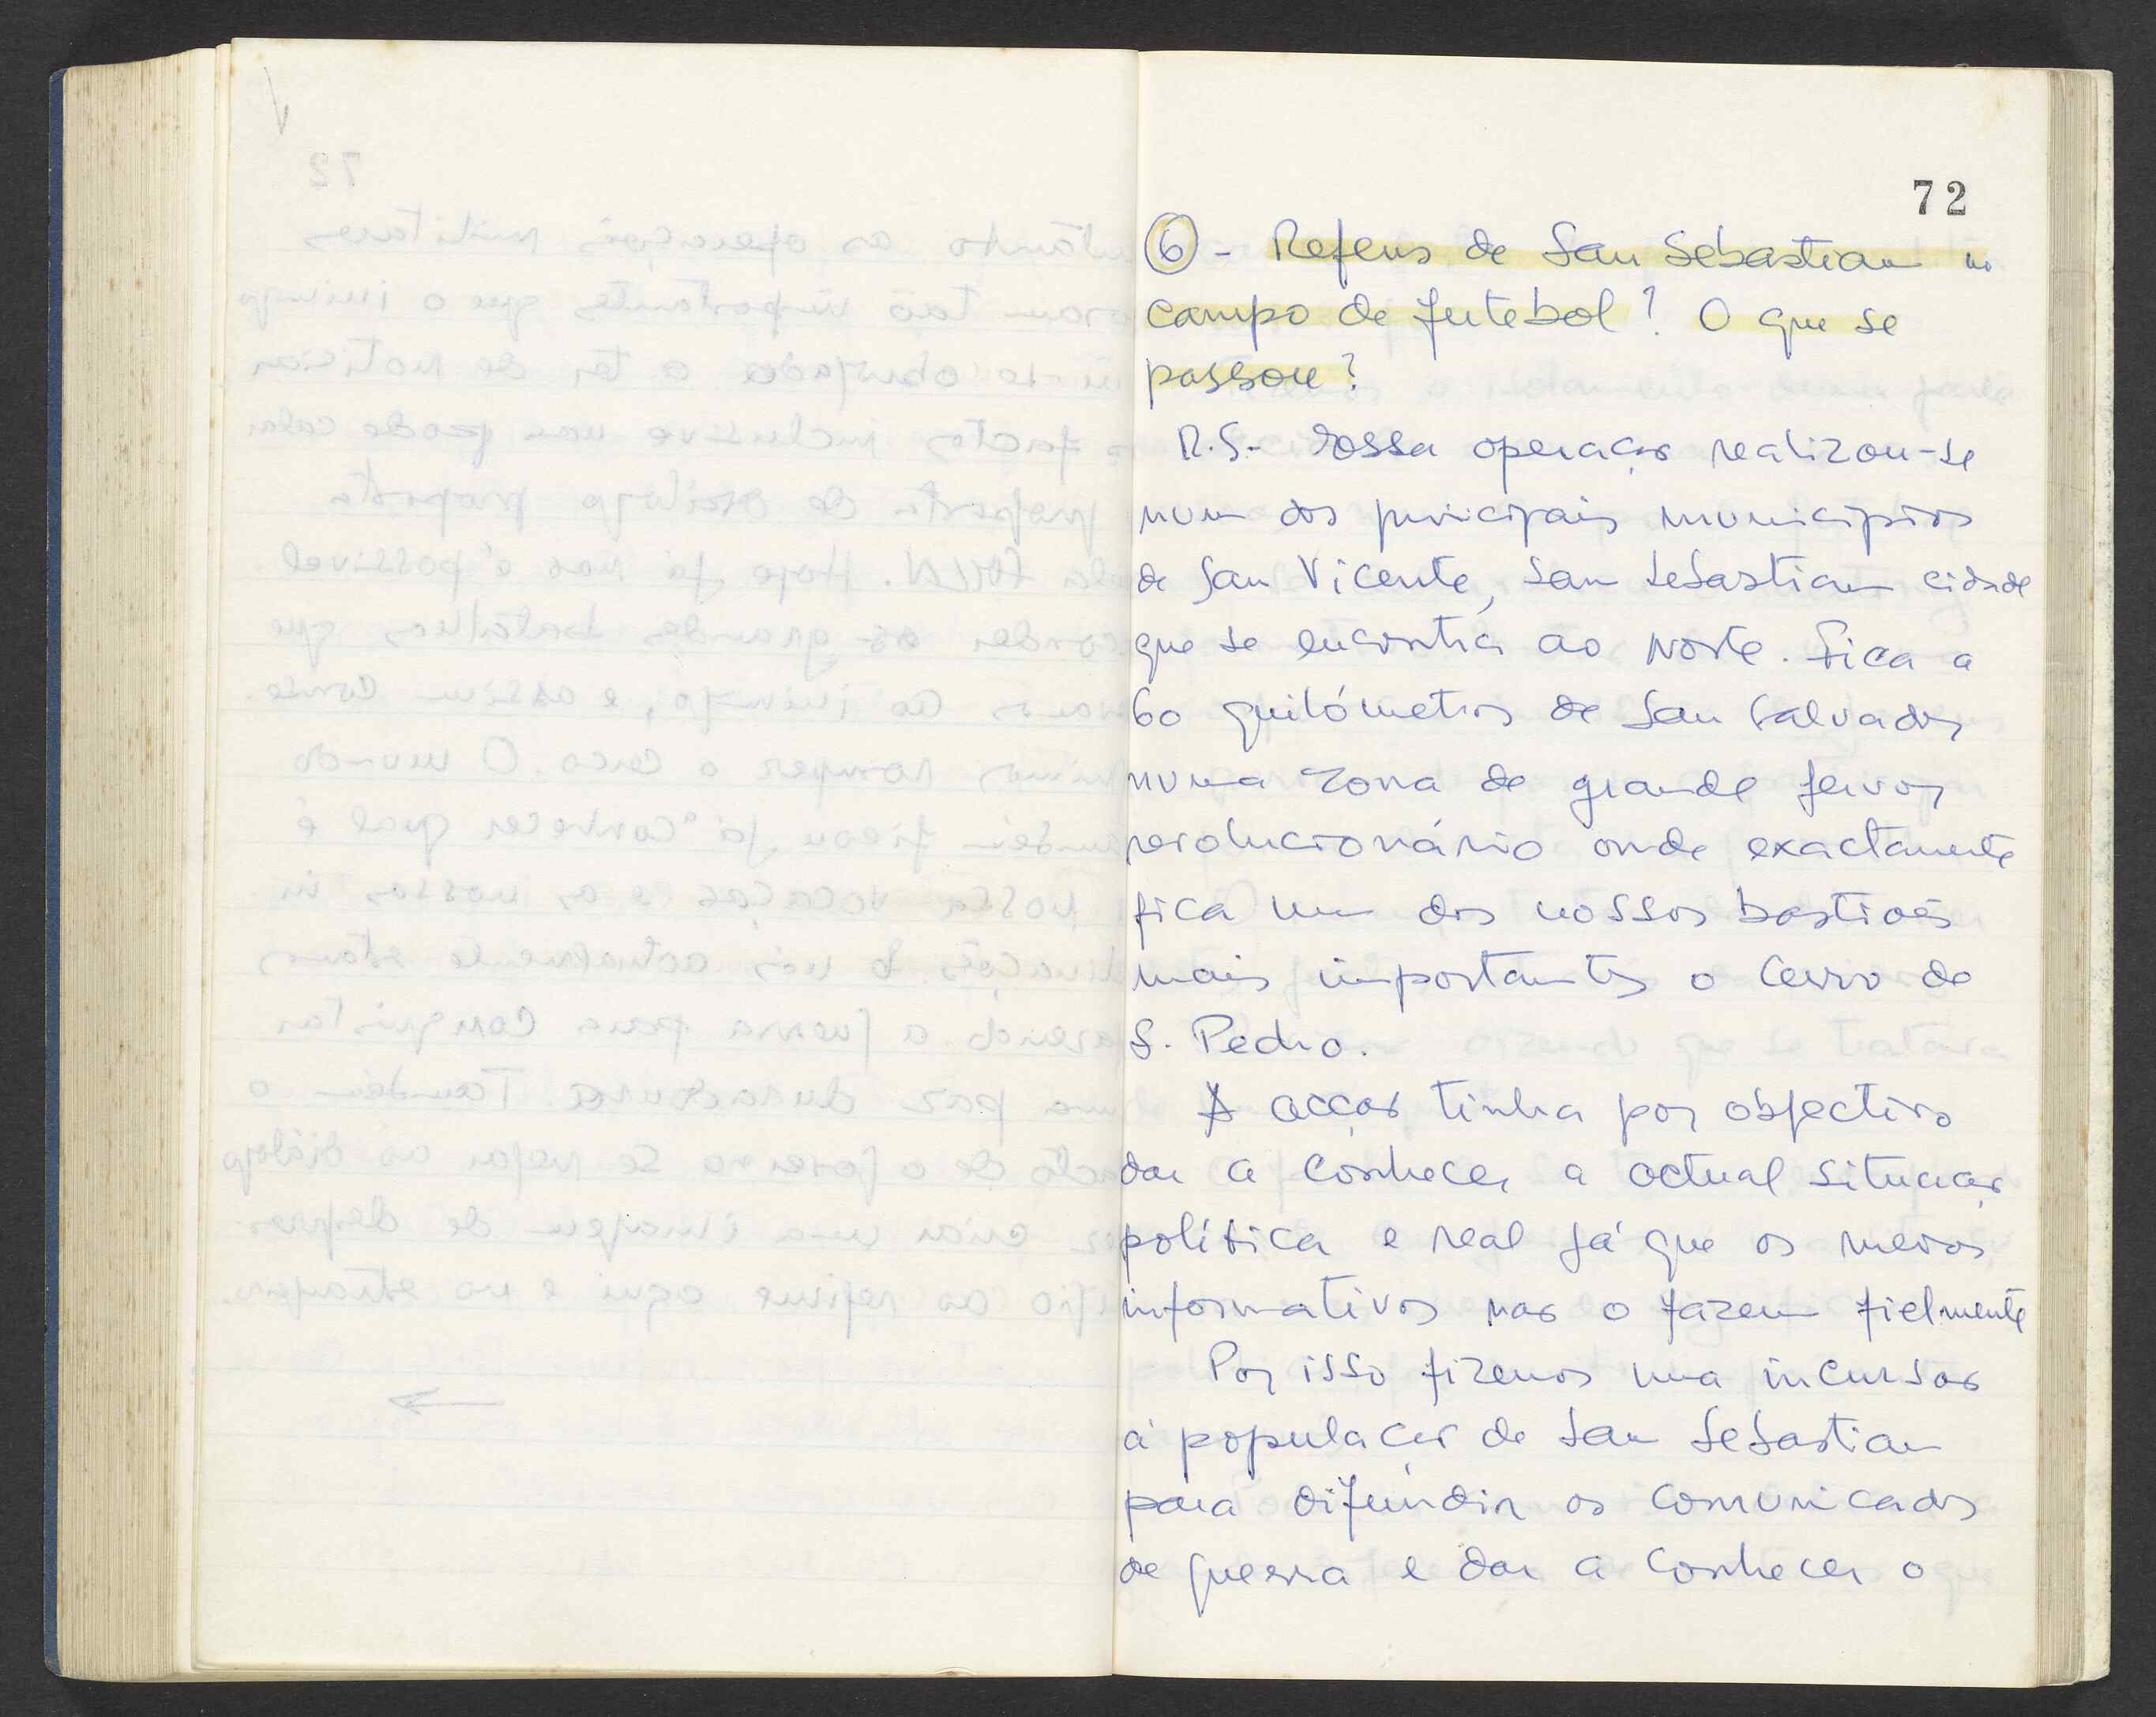 72
6 - Refens de San Sebastian no
campo de futebol? O que se
passou?
R.S- Nossa operação realizou-se
num dos principais municípios
de San Vicente, San Sebastian cidade
que se encontra ao norte. Fica a
60 quilómetros de San Salvador
numa zona de grande fervor
revolucionário onde exactamente
fica um dos nossos bastiões
mais importantes o Cerro de
S. Pedro.
A acção tinha por objectivo
dar a conhecer a actual situação
política e real já que os meios
informativos não o fazem fielmente
Por isso fizemos uma incursão
à população de San Sebastian
para difundir os comunicados
de guerra e dar a conhecer o